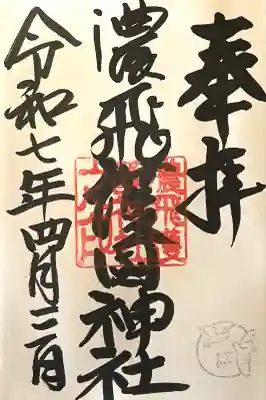 奉拝
濃飛護国神社
令和七年四月三日